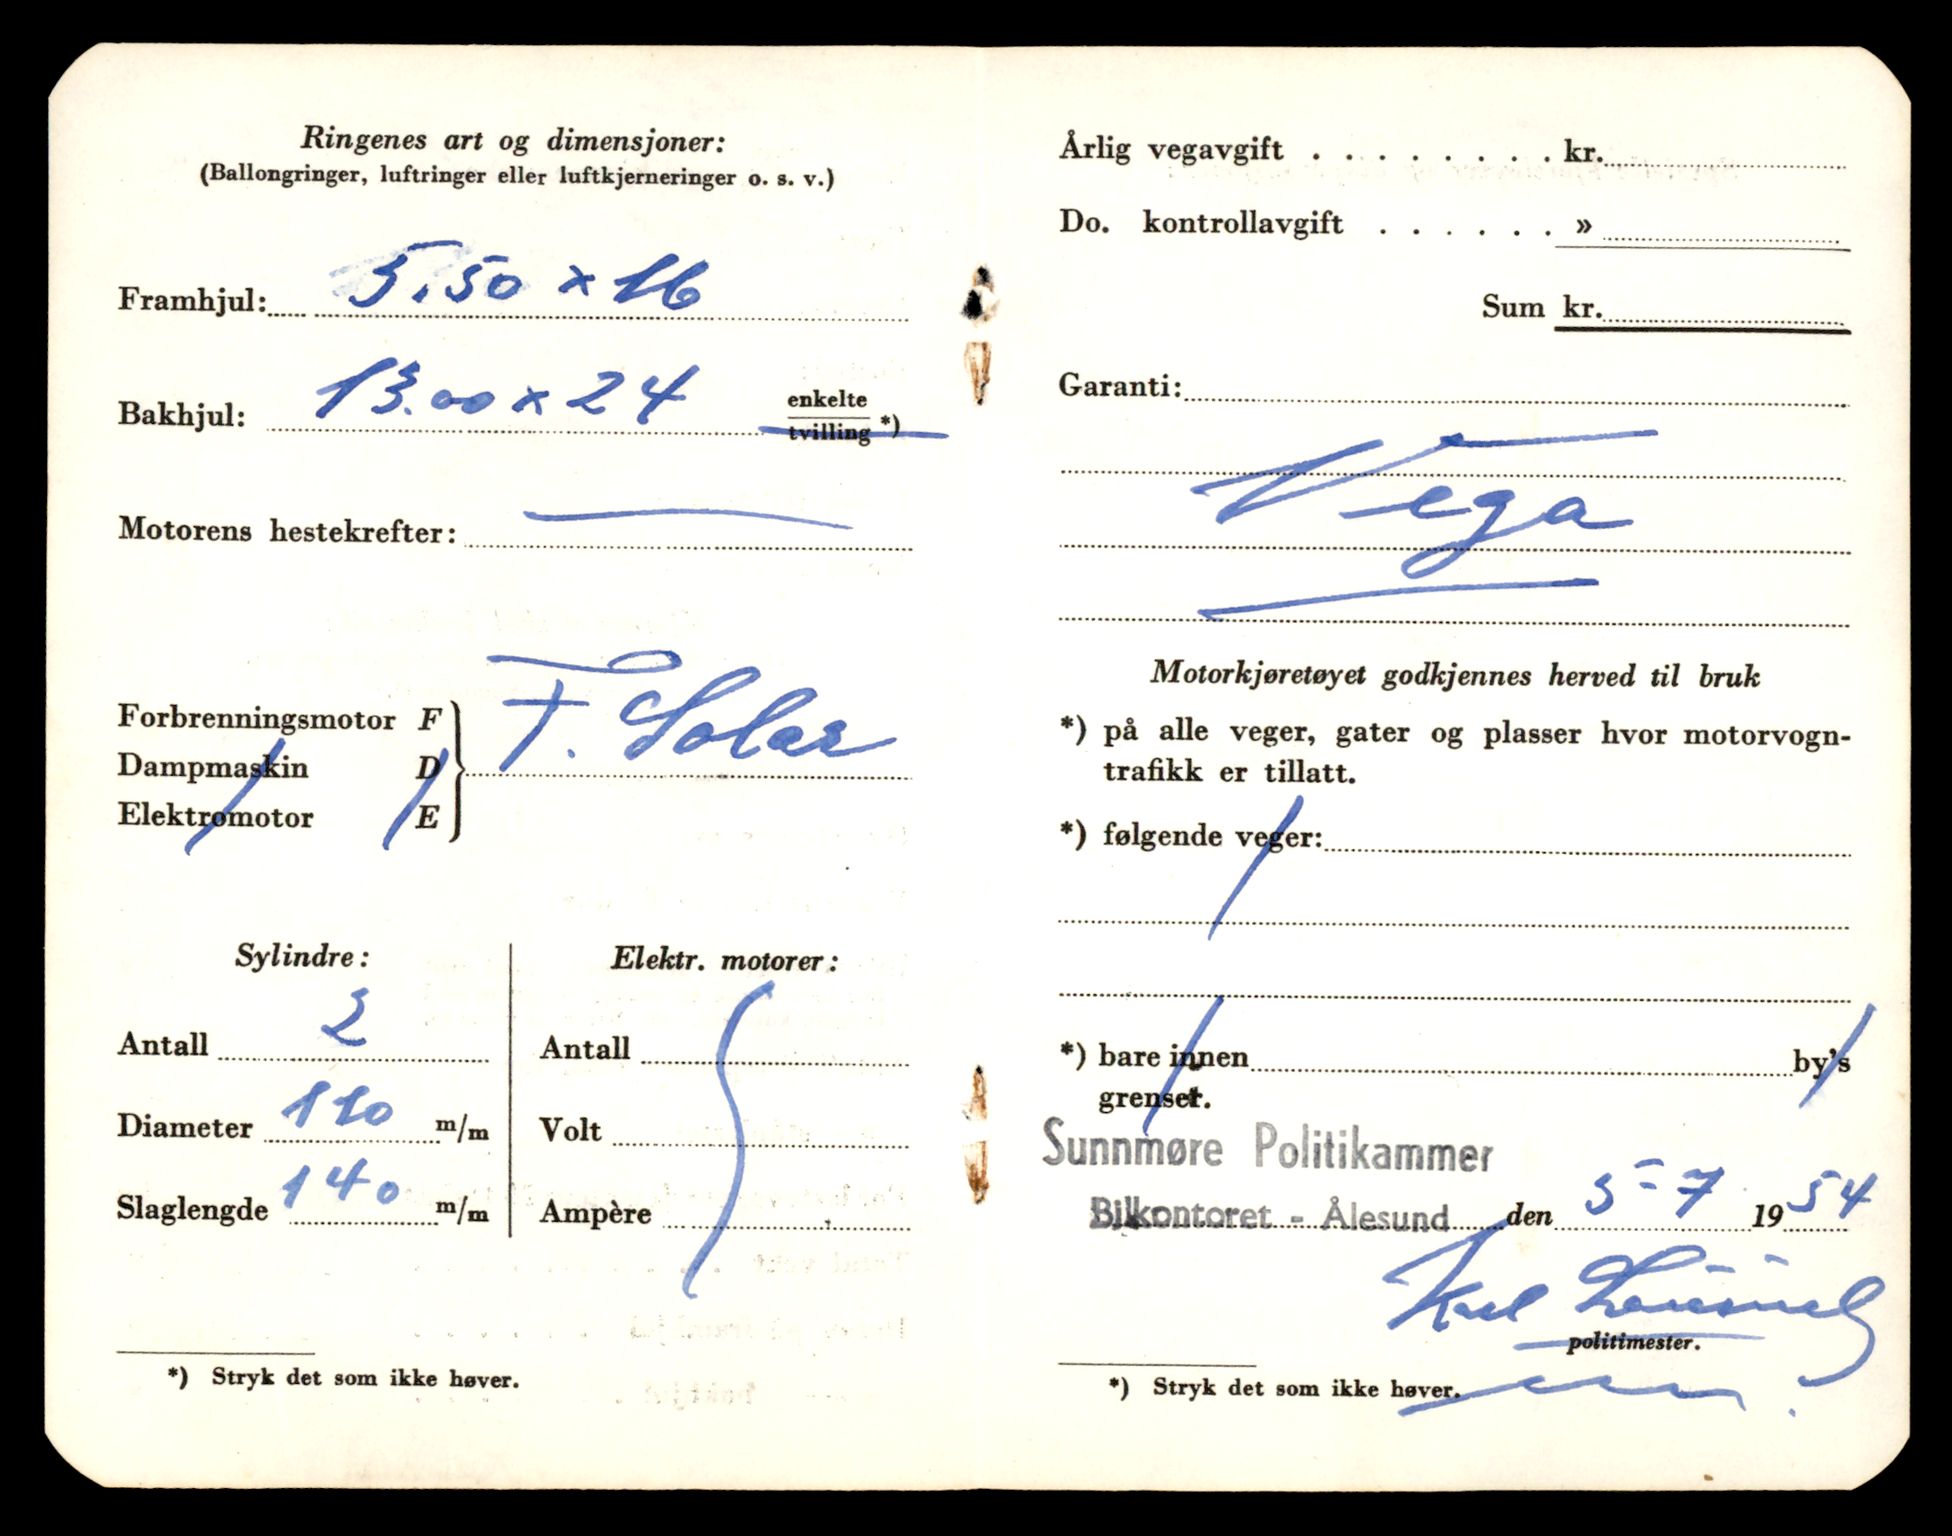 Ringenes art og dimensjoner:
(Ballongringer, luftringer eller luftkjerneringer o. s. v.)
Framhjul: 5.50 x 16
Bakhjul: 13.00 x 24 enkelte
tvilling *)
Motorens hestekrefter:
Forbrenningsmotor F
Dampmaskin D
Elektromotor E
F. Solar
Sylindre:
Antall 2
Diameter 110 m/m
Slaglengde 140 m/m
Elektr. motorer:
Antall
Volt
Ampère
*) Stryk det som ikke høver.
Årlig vegavgift . . . . . . . . kr.
Do. kontrollavgift . . . . . . »
Sum kr.
Garanti:
Vega
Motorkjøretøyet godkjennes herved til bruk
*) på alle veger, gater og plasser hvor motorvogn-
trafikk er tillatt.
*) følgende veger:
*) bare innen by's
grenser.
Sunnmøre Politikammer
Bilkontoret - Ålesund den 5-7 1954
politimester.
*) Stryk det som ikke høver.